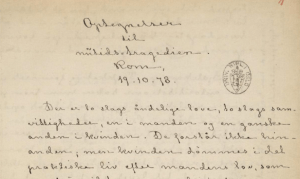 Optegnelser
til
nutids-tragedien.
Rom,
19.10.78.
Der er to slags åndelige love, to slags sam-
vittigheder, en i manden og en ganske
anden i kvinden. De forstår ikke hin-
anden; men kvinden dømmes i det
praktiske liv efter mandens lov, som